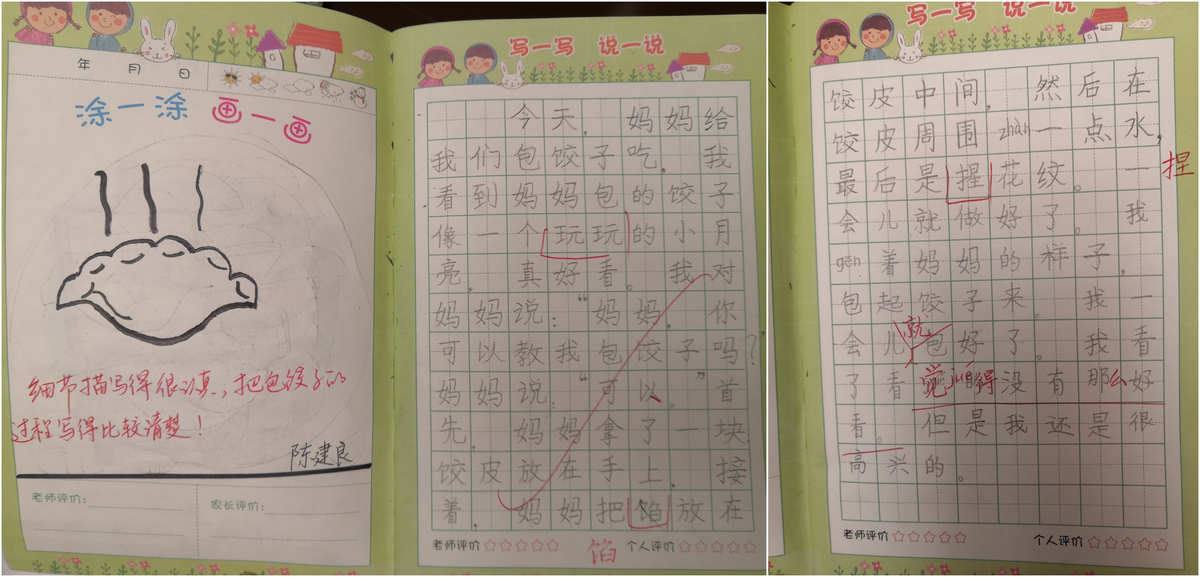 年 月 日
涂一涂 画一画
细节描写得很认真,把包饺子的
过程写得比较清楚!
陈建良
老师评价:
家长评价:
写一写 说一说
今天,妈妈给
我们包饺子吃。我
看到妈妈包的饺子
像一个玩玩的小月
亮,真好看。我对
妈妈说:“妈妈,你
可以教我包饺子吗?
妈妈说:“可以。”首
先,妈妈拿了一块
饺皮放在手上,接
着,妈妈把馅放在
馅
老师评价☆☆☆☆☆ 个人评价☆☆☆☆☆
写一写 说一说
饺皮中间,然后在
饺皮周围zhàn一点水,
最后是捏花纹。一
捏
会儿就做好了。我
gēn着妈妈的样子,
包起饺子来。我一
就
会儿包好了。我看
了看觉jué得没有那么好
看。但是我还是很
高兴的。
老师评价☆☆☆☆☆ 个人评价☆☆☆☆☆